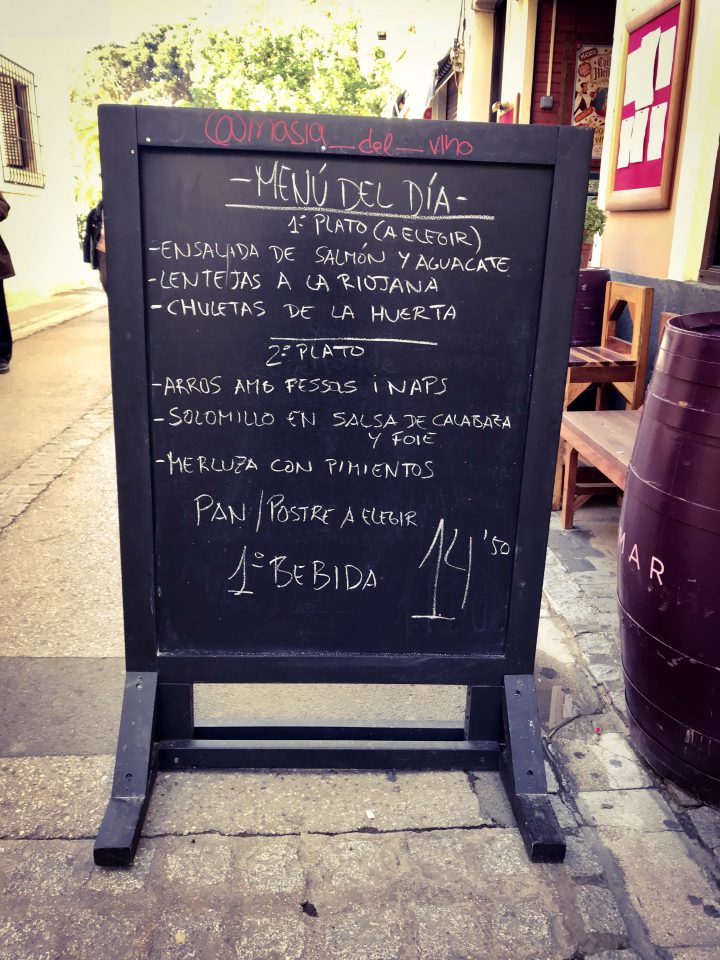 @masia_del_vino
-MENÚ DEL DÍA-
1º PLATO (A ELEGIR)
-ENSALADA DE SALMÓN Y AGUACATE
-LENTEJAS A LA RIOJANA
-CHULETAS DE LA HUERTA
2º PLATO
-ARROS AMB FESSOLS I NAPS
-SOLOMILLO EN SALSA DE CALABAZA
Y FOIE
-MERLUZA CON PIMIENTOS
PAN/POSTRE A ELEGIR
1º BEBIDA
14'50
MAR